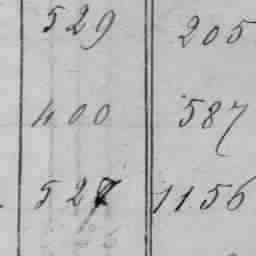 529 205
400 587
527 1156